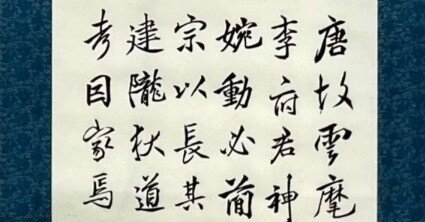 唐故雲麾
李府君神
婉動必簡
宗以長其
建隴狄道
考因家焉